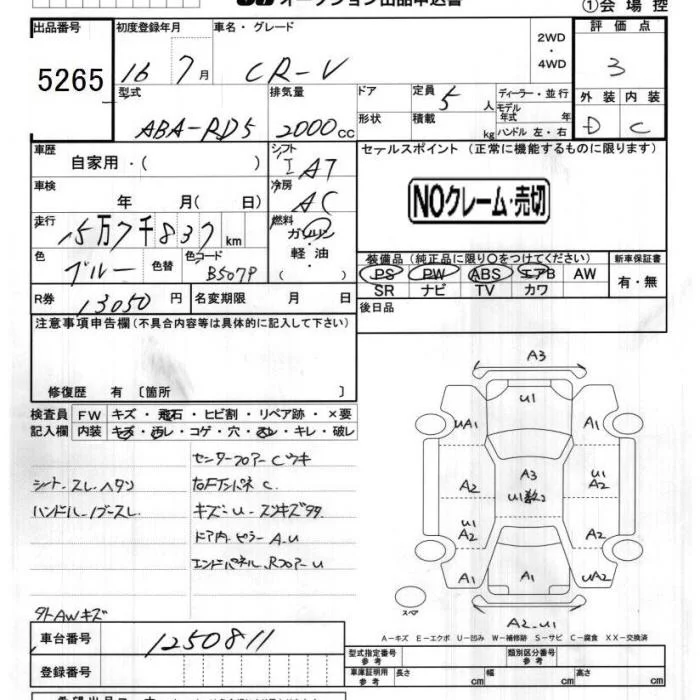 オークション出品申込書
①会場控
出品番号 初度登録年月 車名・グレード 2WD・4WD 評価点
5265 16 7月 CR-V 3
型式 排気量 ドア 定員 5人 ディーラー・並行 外装 内装
ABA-RD5 2000cc 形状 積載 kg モデル年式 年 ハンドル 左・右 D C
車歴 自家用・( ) シフト IAT セールスポイント (正常に機能するものに限ります)
車検 年 月( 日) 冷房 AC
NOクレーム・売切
走行 15万7千837km 燃料 ガソリン・軽油・( )
色 ブルー 色替 色コード B507P
装備品 (純正品に限り○をつけてください) 新車保証書
PS PW ABS エアB AW 有・無
SR ナビ TV カワ
R券 13050円 名変期限 月 日 後日品
注意事項申告欄(不具合内容等は具体的に記入して下さい)
修復歴 有 〔箇所 〕
検査員記入欄 FW キズ・飛石・ヒビ割・リペア跡・×要
内装 キズ・汚レ・コゲ・穴・スレ・キレ・破レ
センターフロアーCツキ
シート.スレ.ヘタリ
ハンドル.ノブースレ
ドア内.ピラーA.U
エンドパネル.RフロアーU
外AWキズ
A3
U1
UA1 A1
A3
A2 U1 A2
U1 A2 A2
A1 A1 UA2
スペア A2.U1
A-キズ E-エクボ U-凹み W-補修跡 S-サビ C-腐食 XX-交換済
車台番号 1250811
型式指定番号 参考 類別区分番号 参考
登録番号
車庫証明用 参考 長さ cm 幅 cm 高さ cm